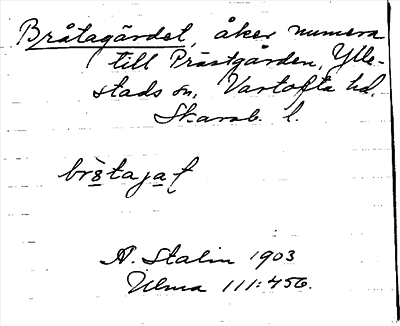 Bråtagärdet, åker numera
till Prästgården, Ylle-
stads sn. Vartofta hd.
Skarab. l.
A. Stalin 1903
Ulma 111:456.